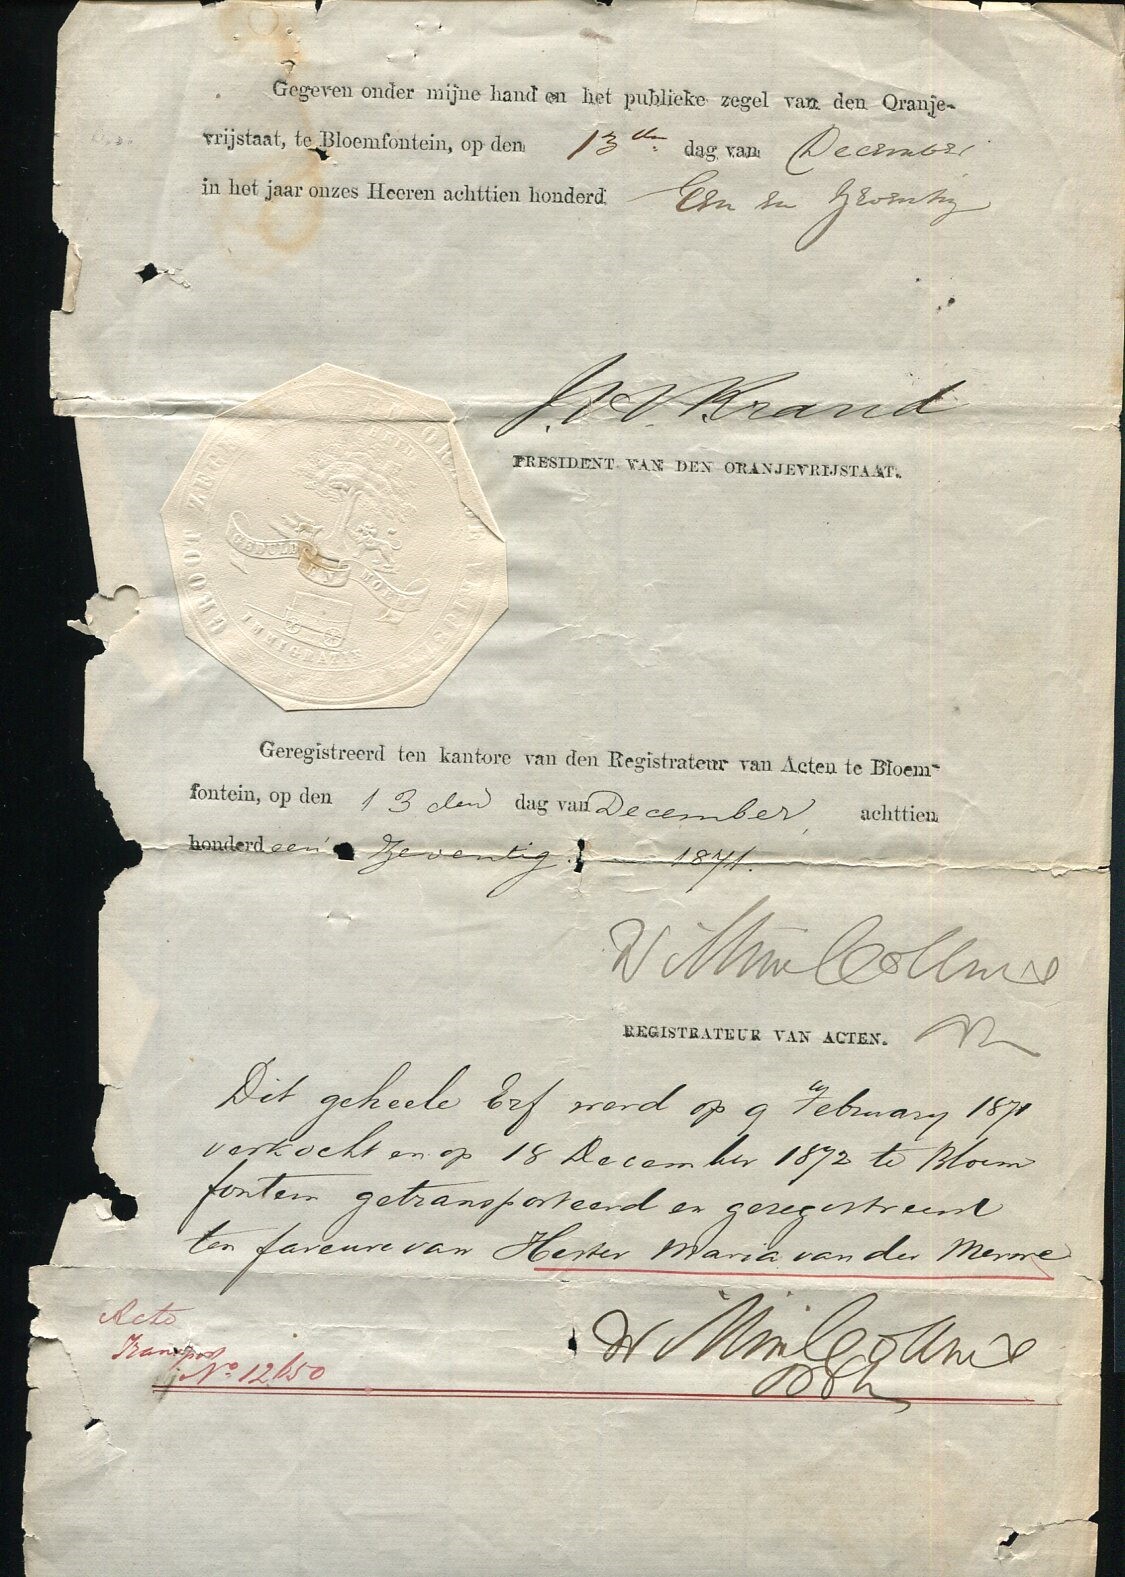 Gegeven onder mijne hand en het publieke zegel van den Oranje-
vrijstaat, te Bloemfontein, op den 13de dag van December
in het jaar onzes Heeren achttien honderd Een en Zeventig
J. H. Brand
PRESIDENT VAN DEN ORANJEVRIJSTAAT.
GROOT ZEGEL
GEDULD EN MOED
IMMIGRATIE
Geregistreerd ten kantore van den Registrateur van Acten te Bloem-
fontein, op den 13 den dag van December, achttien
honderd een Zeventig. 1871.
Collins
REGISTRATEUR VAN ACTEN.
Dit geheele Erf werd op 9 February 1871
verkocht en op 18 December 1872 te Bloem
fontein getransporteerd en geregistreerd
ten faveure van Hester Maria van der Merwe
Acte
Transport
No 12650
Collins